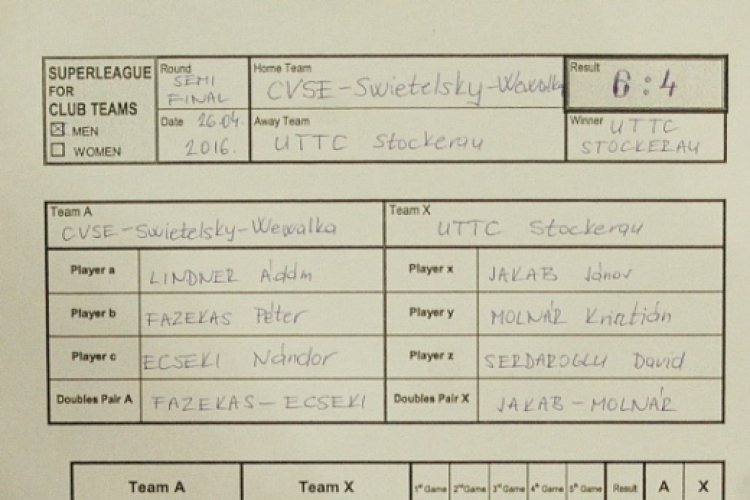 SUPERLEAGUE FOR CLUB TEAMS
☒ MEN
☐ WOMEN
Round SEMI FINAL
Home Team CVSE-Swietelsky-Wewalka
Result 6:4
Date 26.04. 2016.
Away Team UTTC Stockerau
Winner UTTC STOCKERAU
Team A CVSE-Swietelsky-Wewalka
Team X UTTC Stockerau
Player a LINDNER Ádám
Player x JAKAB János
Player b FAZEKAS Péter
Player y MOLNÁR Krisztián
Player c ECSEKI Nándor
Player z SERDAROGLU David
Doubles Pair A FAZEKAS-ECSEKI
Doubles Pair X JAKAB-MOLNÁR
Team A Team X 1st Game 2nd Game 3rd Game 4th Game 5th Game Result A X